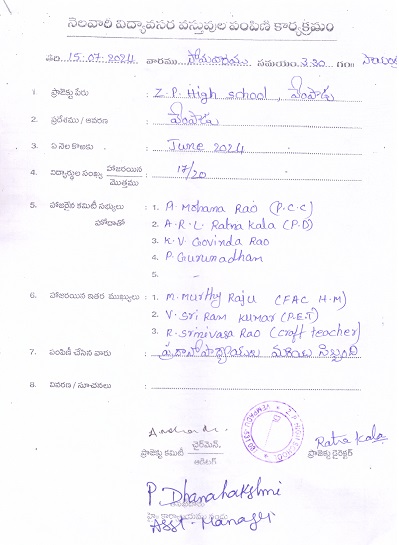 నెలవారి విద్యావసర వస్తువుల పంపిణి కార్యక్రమం
తేది 15.07.2024 వారము సోమవారము సమయం 3.30 గం॥
1. ప్రాజెక్టు పేరు : Z.P. High school, వేంపాడు
2. ప్రదేశము / ఆవరణ : వేంపాడు
3. ఏ నెల కొఱకు : June 2024
4. విద్యార్థుల సంఖ్య హాజరయిన / మొత్తము : 17/20
5. హాజరైన కమిటీ సభ్యులు : 1. A. Mohana Rao (P.C.C)
హోదాతో 2. A.R.L. Ratna Kala (P.D)
3. K.V. Govinda Rao
4. P. Gurunadham
5. -
6. హాజరయిన ఇతర ముఖ్యులు : 1. M. Murthy Raju (FAC H.M)
2. V. Sri Ram Kumar (P.E.T)
3. R. Srinivasa Rao (Craft teacher)
7. పంపిణీ చేసిన వారు : ప్రధానోపాధ్యాయులు మరియు సిబ్బంది
8. వివరణ / సూచనలు :
Ratna Kala
ప్రాజెక్టు కమిటీ చైర్‌మెన్. / ఆడిటర్
ప్రాజెక్టు డైరెక్టర్
P. Dhanalakshmi
Asst. Manager